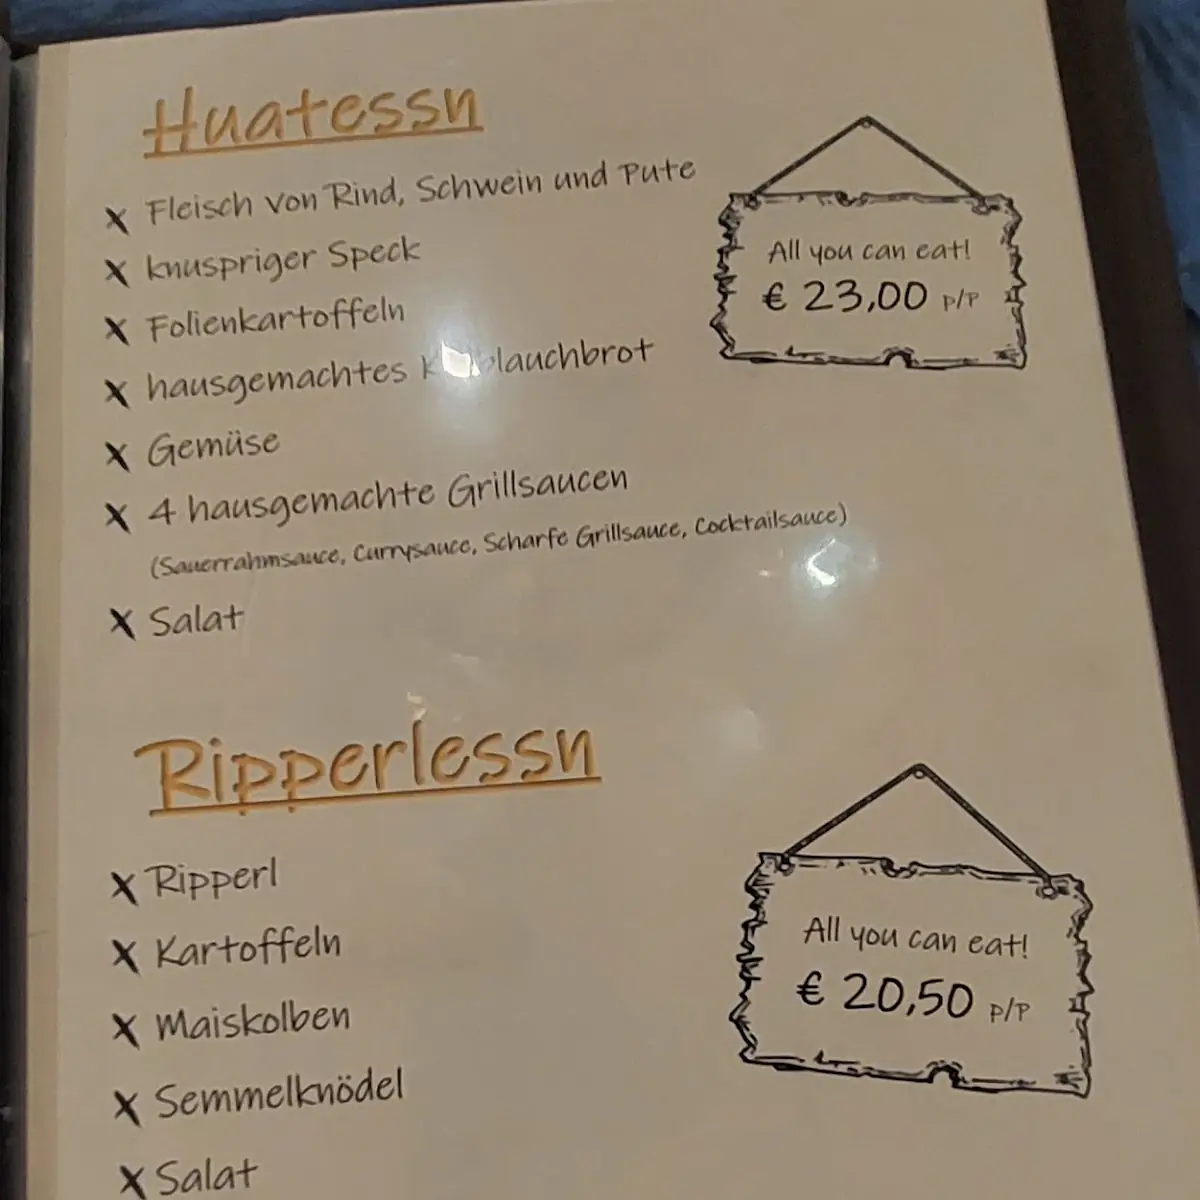 Huatessn
x Fleisch von Rind, Schwein und Pute
x knuspriger Speck
x Folienkartoffeln
x hausgemachtes Knoblauchbrot
x Gemüse
x 4 hausgemachte Grillsaucen
(Sauerrahmsauce, Currysauce, Scharfe Grillsauce, Cocktailsauce)
x Salat
All you can eat!
€ 23,00 p/P
Ripperlessn
x Ripperl
x Kartoffeln
x Maiskolben
x Semmelknödel
x Salat
All you can eat!
€ 20,50 p/P